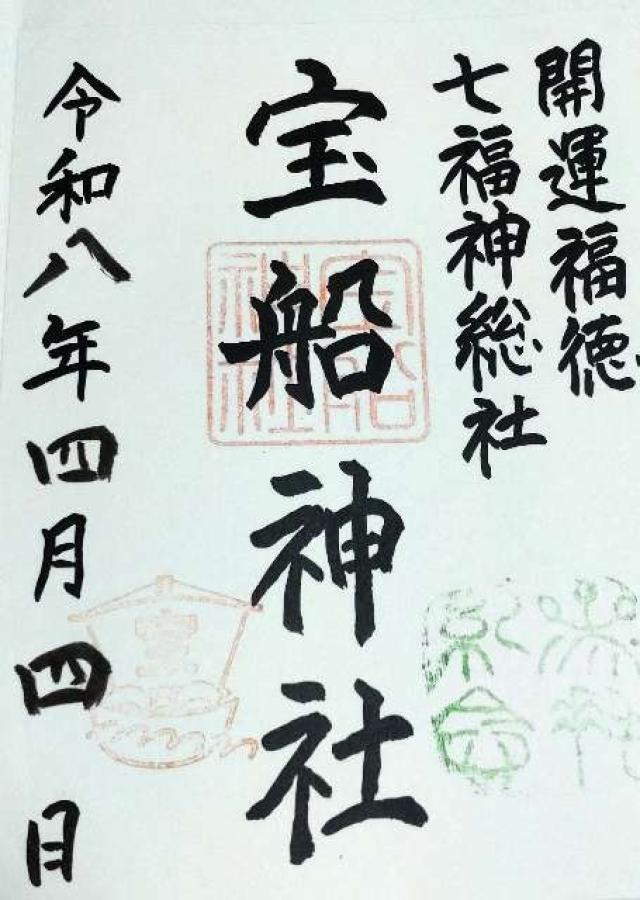 開運福徳
七福神総社
宝船神社
宝船
神社
令和八年四月四日